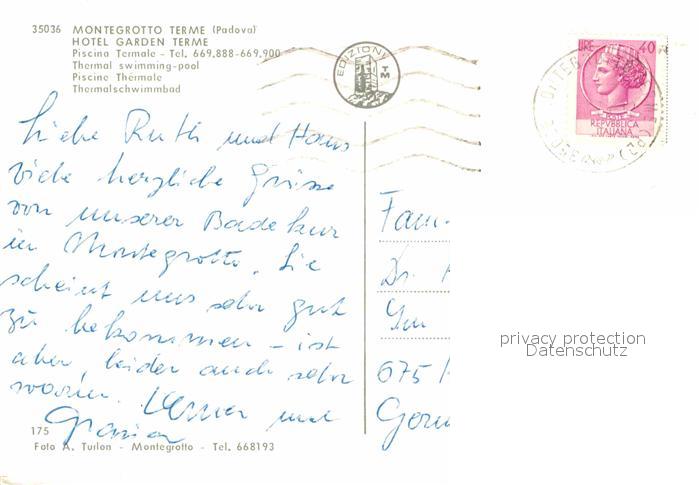 35036 MONTEGROTTO TERME (Padova)
HOTEL GARDEN TERME
Piscina Termale - Tel. 669.888-669.900
Thermal swimming-pool
Piscine Thérmale
Thermalschwimmbad
EDIZIONI
TM
LIRE 40
POSTE
REPVBBLICA
ITALIANA
Liebe Ruth und Hans
viele herzliche Grüsse
von unserer Badekur
in Montegrotto. Sie
scheint uns sehr gut
zu bekommen - ist
aber leider auch sehr
warm. Werner und
175
Foto A. Turlon - Montegrotto - Tel. 668193
Fam.
Dr.
675
Germ
privacy protection
Datenschutz